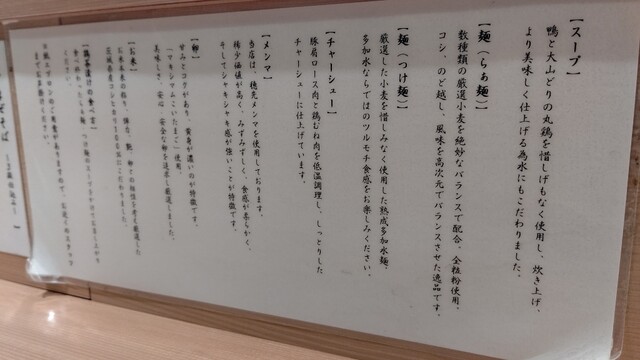 【スープ】
鴨と大山どりの丸鶏を惜しげもなく使用し、炊き上げ、
より美味しく仕上げる為水にもこだわりました。
【麺（らぁ麺）】
数種類の厳選小麦を絶妙なバランスで配合。全粒粉使用。
コシ、のど越し、風味を高次元でバランスさせた逸品です。
【麺（つけ麺）】
厳選した小麦を惜しみなく使用した熟成多加水麺。
多加水ならではのツルモチ食感をお楽しみください。
【チャーシュー】
豚肩ロース肉と鶏むね肉を低温調理し、しっとりした
チャーシューに仕上げています。
【メンマ】
当店は、穂先メンマを使用しております。
稀少価値が高く、みずみずしく、食感が柔らかく、
そしてシャキシャキ感が強いことが特徴です。
【卵】
甘みとコクがあり、黄身が濃いのが特徴です。
「マキシマムこいたまご」使用。
美味しさ、安心、安全な卵を追求し厳選しました。
【お米】
お米本来の粘り、弾力、艶
茨城県産コシヒカリ